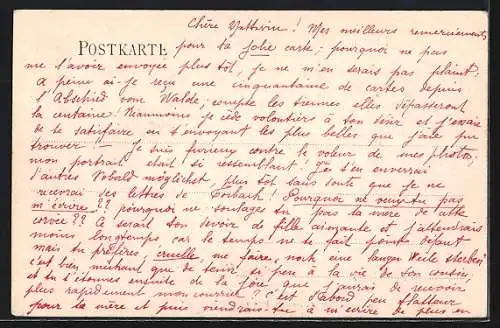 Chère Yattvin ! Mes meilleurs remerciements
POSTKARTE
pour ta jolie carte ; pourquoi ne pas
me l'avoir envoyée plus tôt, je ne m'en serais pas plaint.
A peine ai-je reçu une cinquantaine de cartes depuis
l'Abschied vom Walde ; compte les tiennes elles dépasseront
la centaine ! Néanmoins je cède volontiers à ton désir et j'essaie
de te satisfaire en t'envoyant les plus belles que j'aie pu
trouver — Je suis furieux contre le voleur de mes photos,
mon portrait était si ressemblant ! J't'en enverrai
d'autres sobald möglichst, plus tôt sans doute que je ne
recevrai des lettres de Corbach ! Pourquoi ne veux-tu pas
m'écrire ?? pourquoi ne soulages-tu pas ta mère de cette
corvée ?? Ce serait ton devoir de fille aimante et j'attendrais
moins longtemps, car le temps ne te fait point défaut
mais tu préfères, cruelle, me faire, noch eine langen Weile sterben ?
c'est bien méchant que de tenir si peu à la vie de son cousin,
et tu t'étonnes ensuite de la joie que j'aurais de recevoir
plus rapidement mon courrier ? c'est d'abord peu flatteur
pour ta mère et puis viendrais-tu à m'écrire de plus en